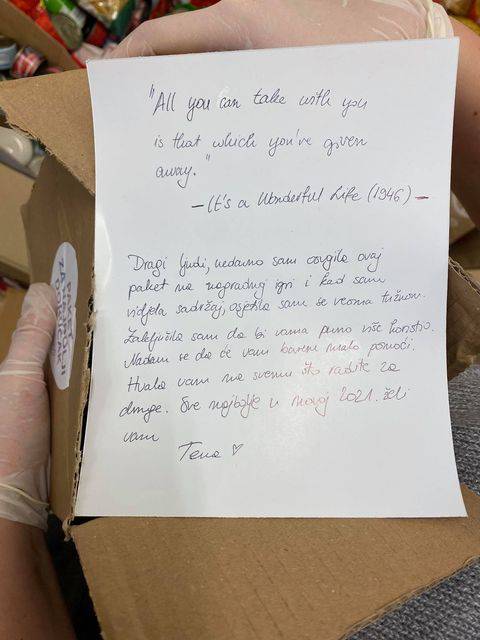 "All you can take with you
is that which you've given
away."
- It's a Wonderful Life (1946) -
Dragi ljudi, nedavno sam osvojila ovaj
paket na nagradnoj igri i kad sam
vidjela sadržaj, osjetila sam se veoma tužnom.
Zaključila sam da bi vama puno više koristio.
Nadam se da će vam barem malo pomoći.
Hvala vam na svemu što radite za
druge. Sve najbolje u novoj 2021. želi
vam
Tena ♡